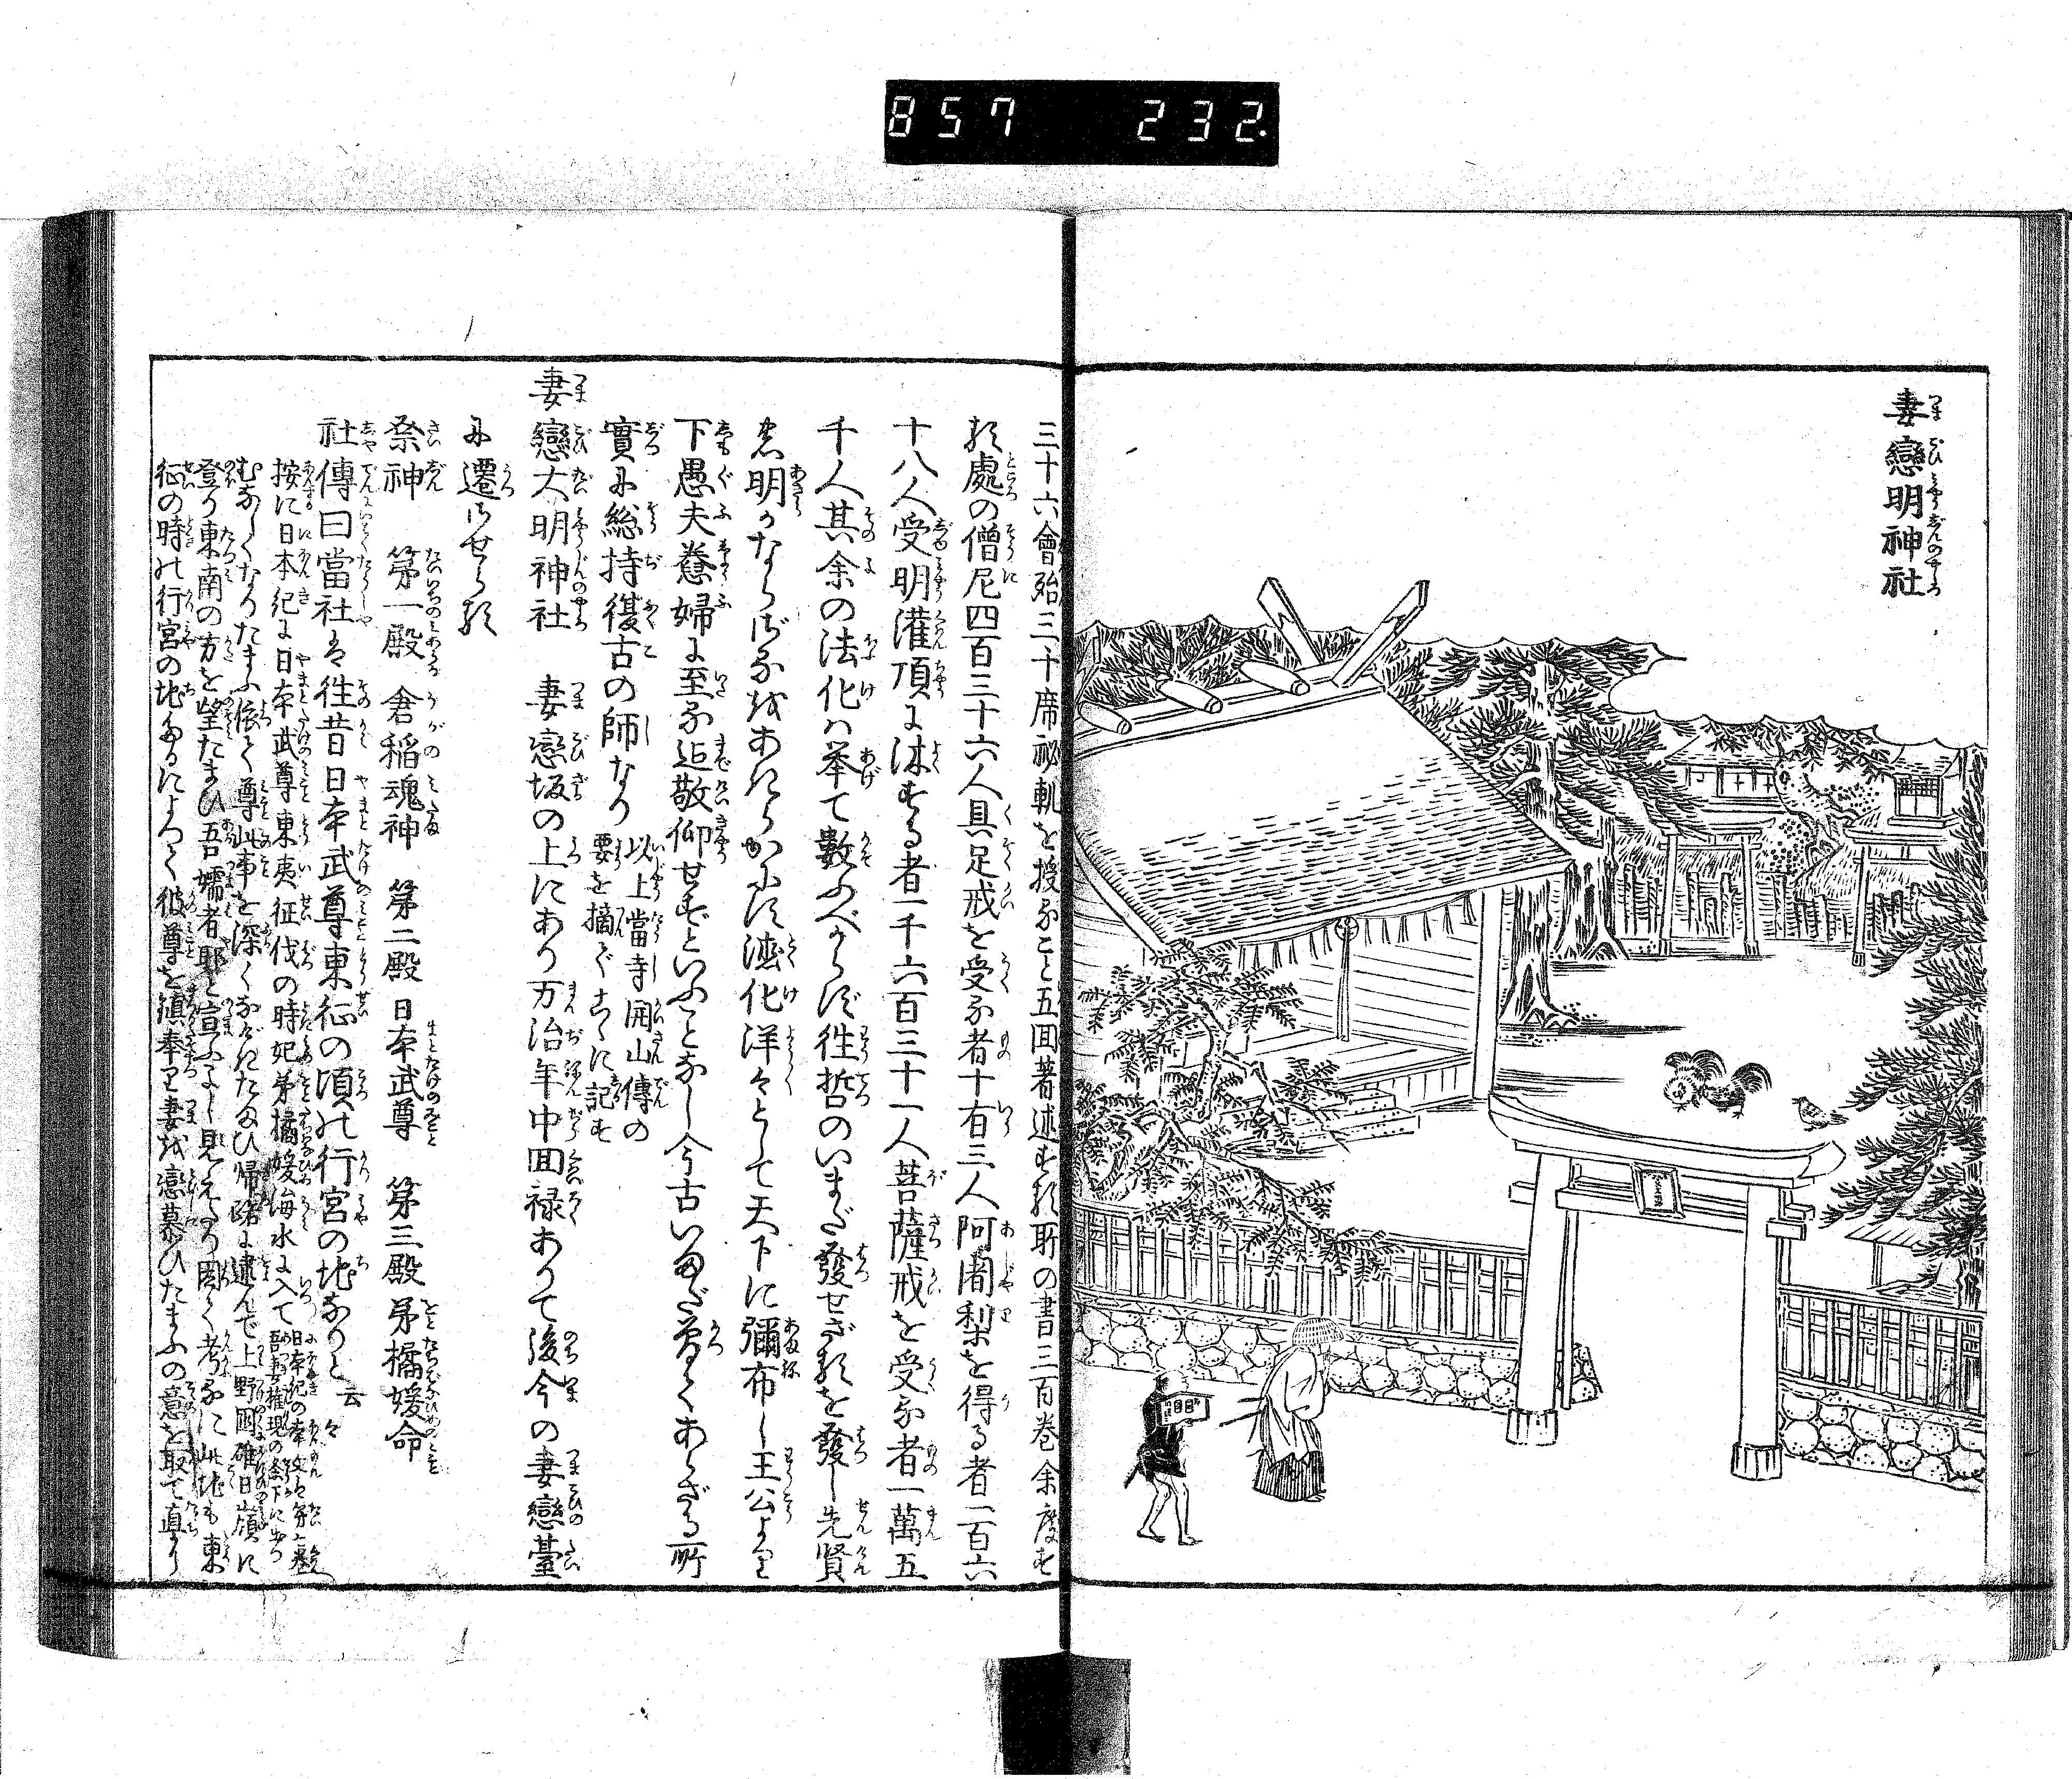 857 232.
妻戀明神社
三十六會殆三十席祕軌を授ること五囬著述する所の書三百巻余度す
る處の僧尼四百三十六人具足戒を受る者十有三人阿闍梨を得る者二百六
十八人受明灌頂に沐する者一千六百三十一人菩薩戒を受る者一萬五
千人其余の法化は挙て數ふべからず徃哲のいまだ發せざるを發し先賢
明かならざるをあきらかにす
化洋々として天下に彌布し王公より
下愚夫惷婦に至る迄敬仰せずといふことなし今古いまだ曽てあらざる所
實に総持復古の師なり
以上當寺開山傳の
要を摘ぐこゝに記す
妻戀大明神社 妻戀坂の上にあり万治年中囬禄ありて後今の妻戀臺
に遷させらる
祭神 第一殿 倉稲魂神 第二殿 日本武尊 第三殿 弟橘媛命
社傳曰當社は徃昔日本武尊東征の頃の行宮の地なりと云々
按に日本紀に日本武尊東夷征伐の時妃弟橘媛海水に入て
日本紀の本文は第一巻
吾妻権現の条下に出づ
むなしくなりたまふ依て尊此事を深くなげきたまひ帰路に逮んで上野國碓日嶺に
登り東南の方を望たまひ吾嬬者耶と宣ふよし見えたり因て考るに此地も東
征の時の行宮の地なるによつて彼尊を鎮奉り妻を恋慕ひたまふの意を取て直に